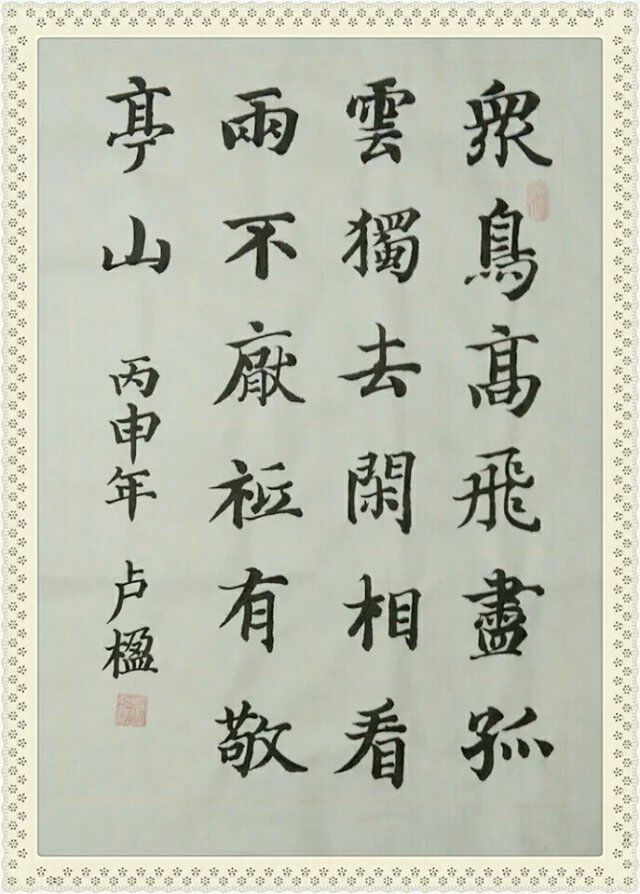 眾鳥高飛盡孤
雲獨去閑相看
兩不厭袛有敬
亭山
丙申年 卢楹